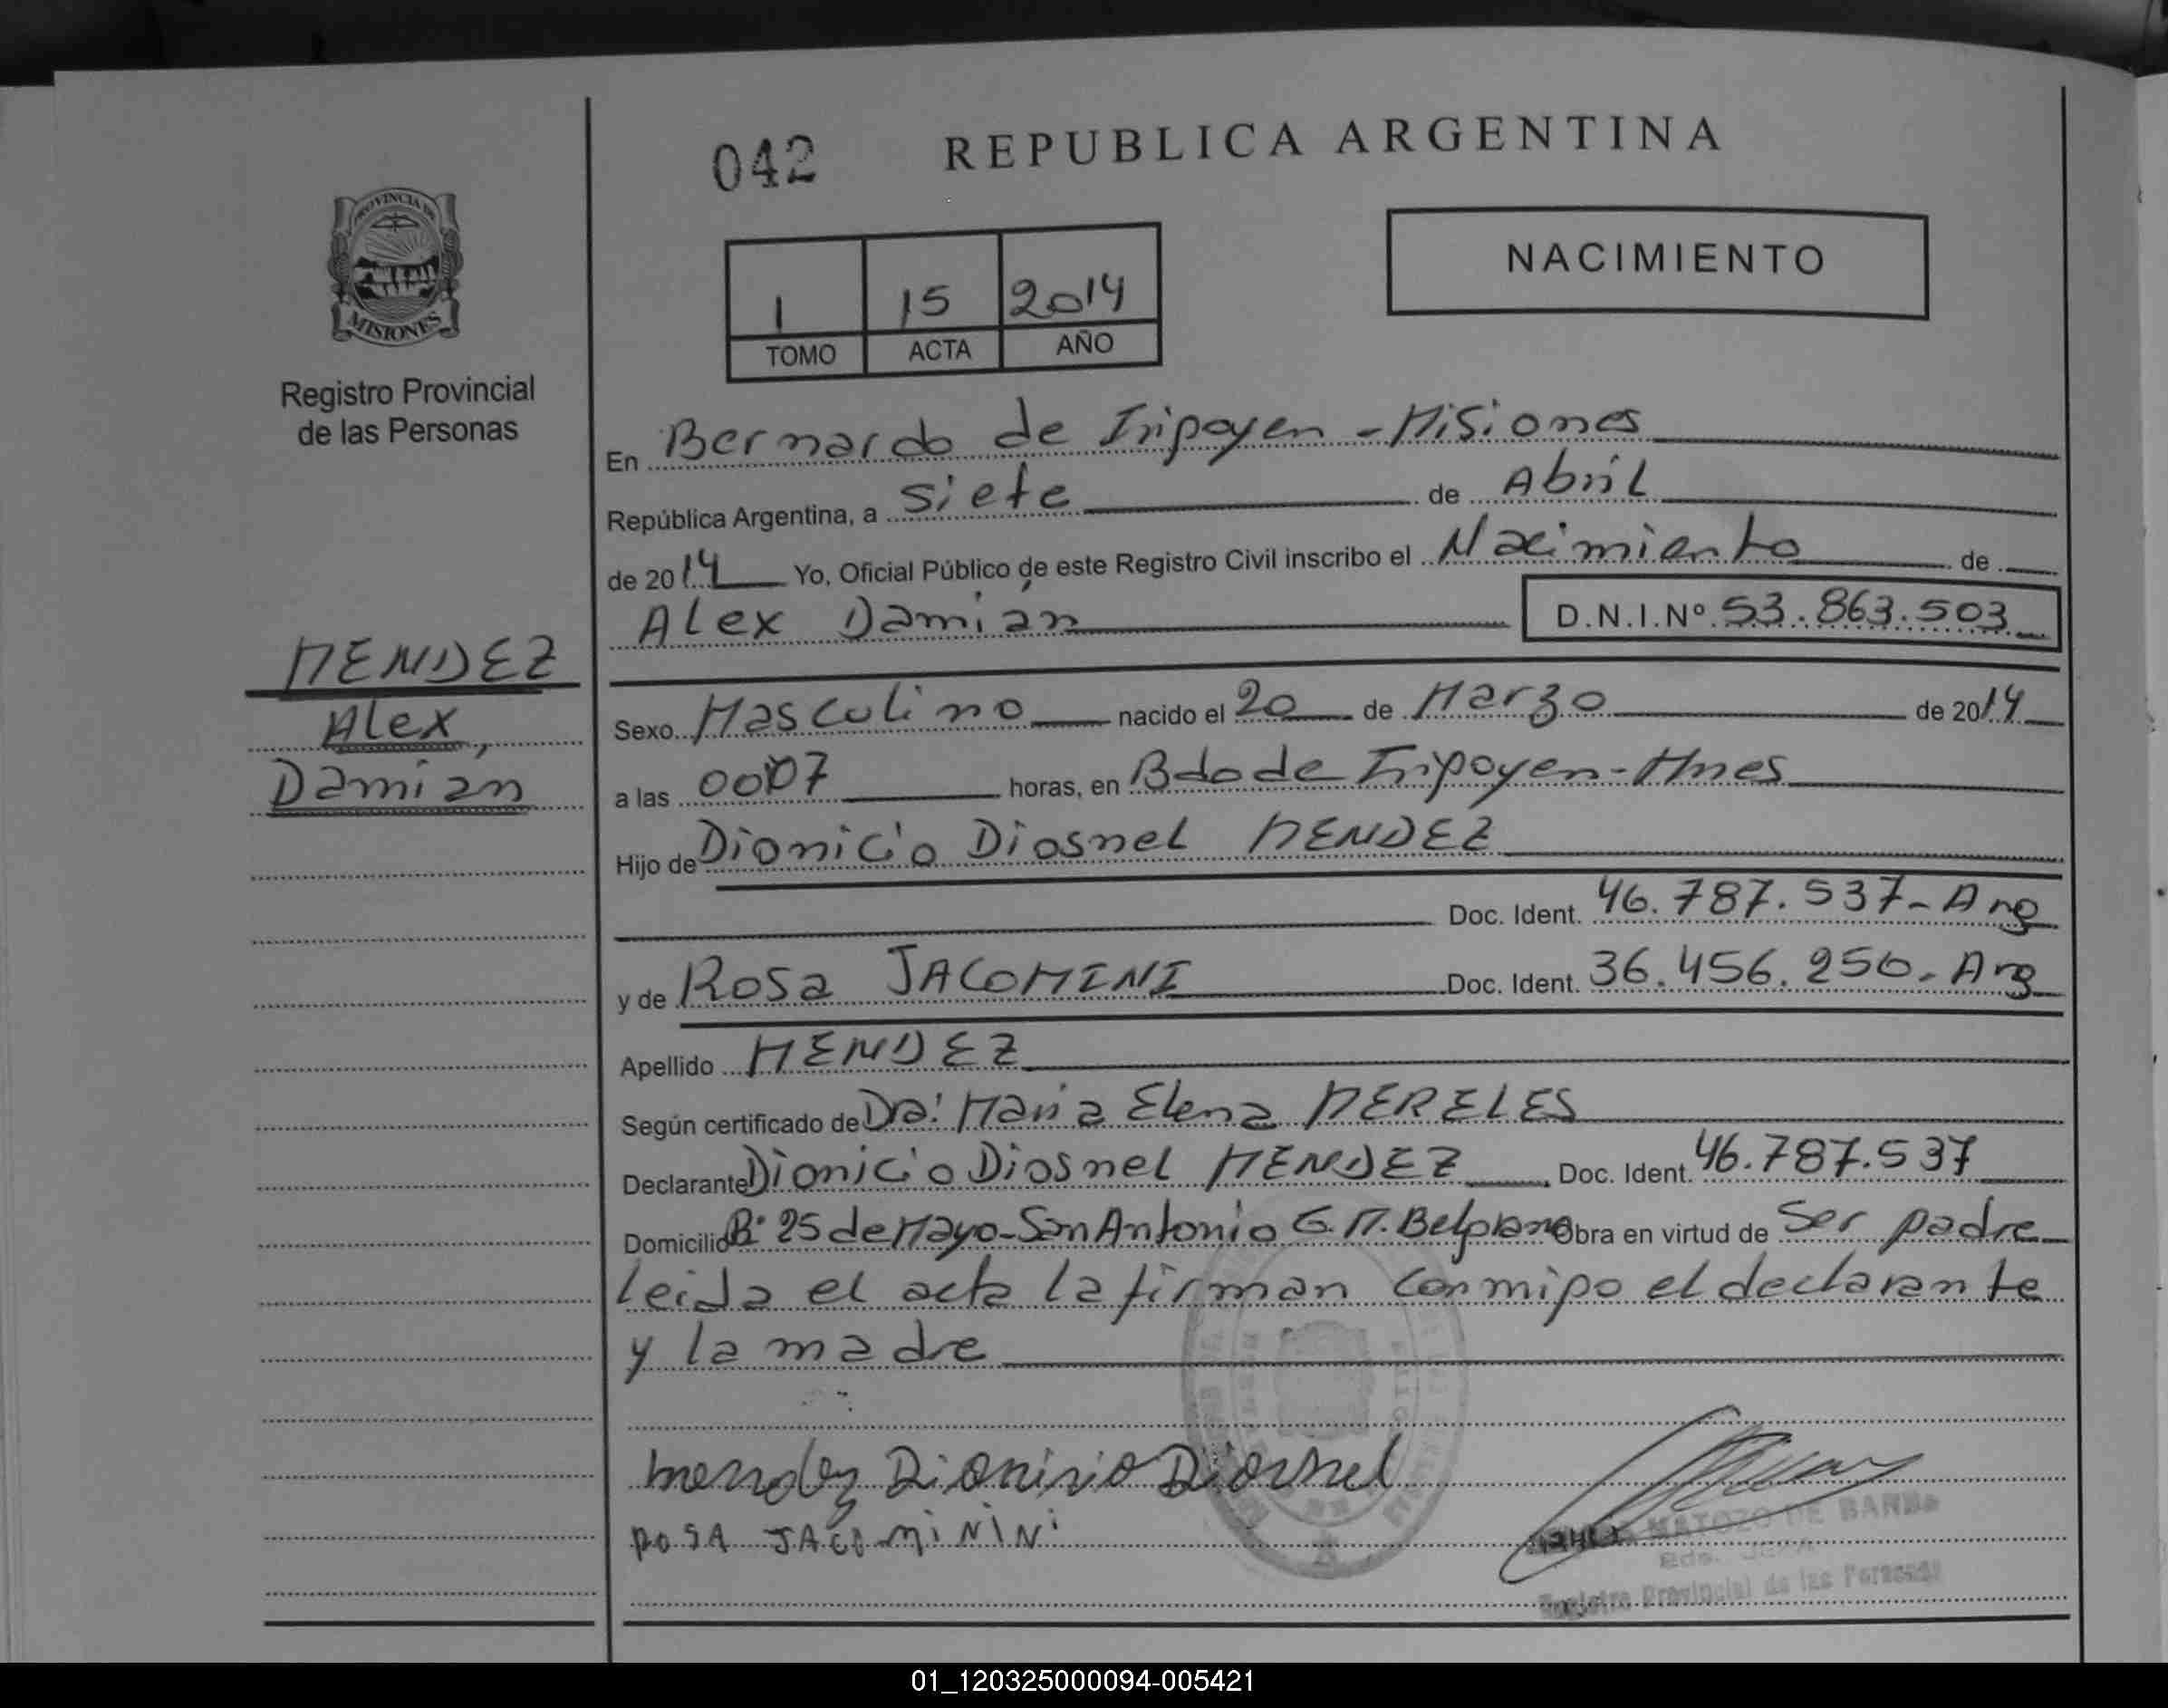 042 REPUBLICA ARGENTINA
PROVINCIA DE
MISIONES
NACIMIENTO
1 15 2014
TOMO ACTA AÑO
Registro Provincial
de las Personas
En Bernardo de Iripoyen - Misiones
República Argentina, a siete de Abril
de 2014 Yo, Oficial Público de este Registro Civil inscribo el Nacimiento de
Alex Damián D.N.I.Nº 53.863.503
MENDEZ
Alex,
Damian
Sexo Masculino nacido el 20 de Marzo de 2014
a las 0007 horas, en Bdo de Iripoyen - Mnes
Hijo de Dionicio Diosnel MENDEZ
Doc. Ident. 46.787.537 - Arg
y de Rosa JACOMINI Doc. Ident. 36.456.250 - Arg
Apellido MENDEZ
Según certificado de Dra: Maria Elena MERELES
Declarante Dionicio Diosnel MENDEZ Doc. Ident. 46.787.537
Domicilio Bº 25 de Mayo - San Antonio G. M. Belprano Obra en virtud de Ser padre
leida el acta la firman conmipo el declarante
y la madre
mendez Dionisio Diosnel
ROSA JACOMININI
MATOZO DE BARBA
Registro Provincial de las Personas
01_120325000094-005421